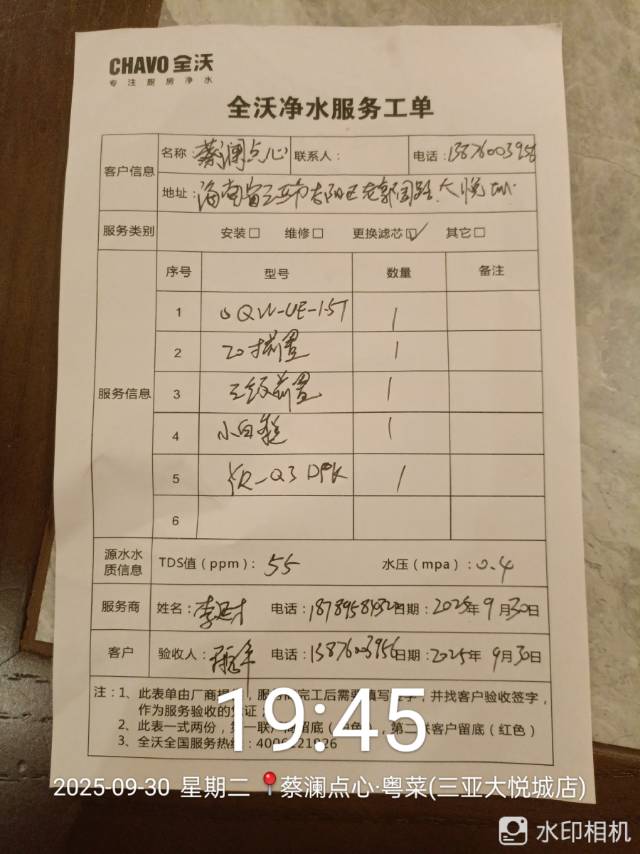 CHAVO 全沃
专注厨房净水
全沃净水服务工单
客户信息 名称: 蔡澜点心 联系人: 电话: 13876003956
地址: 海南省三亚市吉阳区 大悦城
服务类别 安装□ 维修□ 更换滤芯☑ 其它□
服务信息 序号 型号 数量 备注
1 QW-UE-15T 1
2 20寸前置 1
3 三级前置 1
4 小白 1
5 1
6
源水水质信息 TDS值(ppm): 55 水压(mpa): 0.4
服务商 姓名: 李 电话: 日期: 2025年9月30日
客户 验收人: 电话: 13876003956 日期: 2025年9月30日
注: 1、此表单由厂商 服务 完工后需要填写 并找客户验收签字,
作为服务验收的凭证;
2、此表一式两份, 留底 第二联客户留底(红色)
3、全沃全国服务热线:
19:45
2025-09-30 星期二 蔡澜点心·粤菜(三亚大悦城店)
水印相机